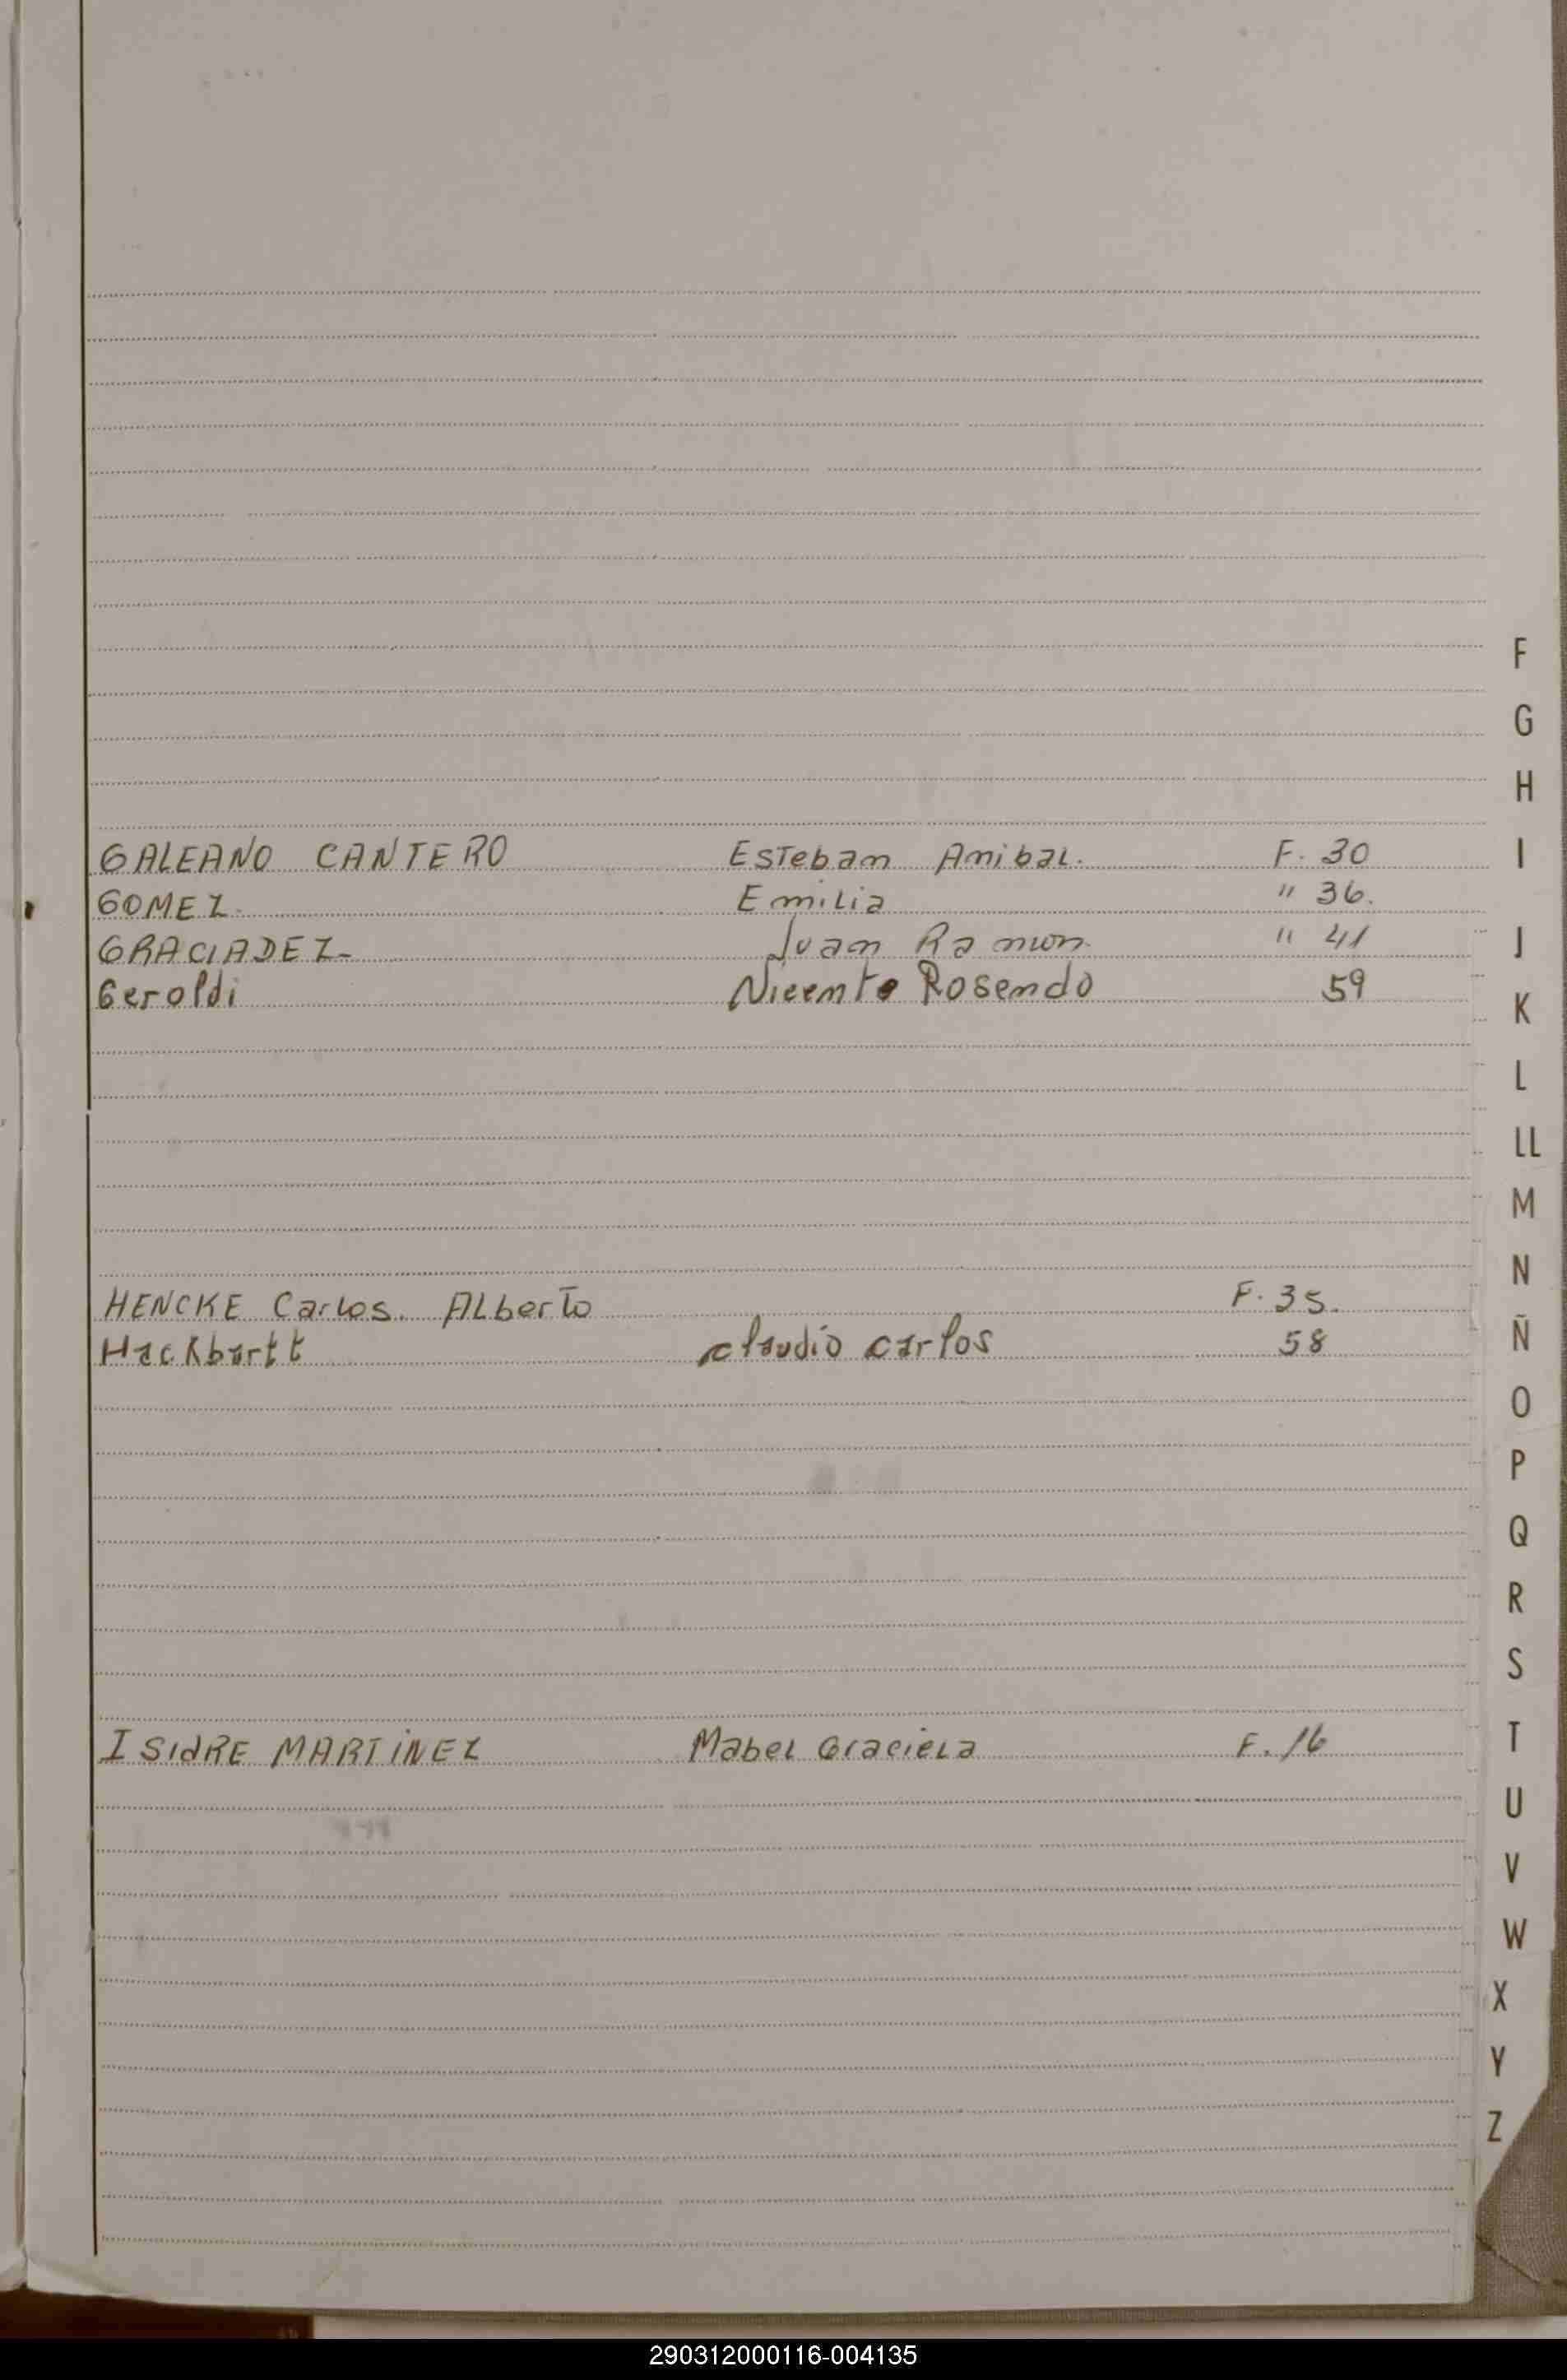 F
G
H
GALEANO CANTERO Esteban Anibal. F. 30 I
GOMEZ. Emilia " 36.
GRACIADEZ- Juan Ramon. " 41 J
Geroldi Nicente Rosendo 59
K
L
LL
M
N
HENCKE Carlos. ALberto F. 35.
Hackbartt claudio carlos 58 Ñ
O
P
Q
R
S
ISIdRE MARTiNEZ Mabel Graciela F. 16 T
U
V
W
X
Y
Z
290312000116-004135